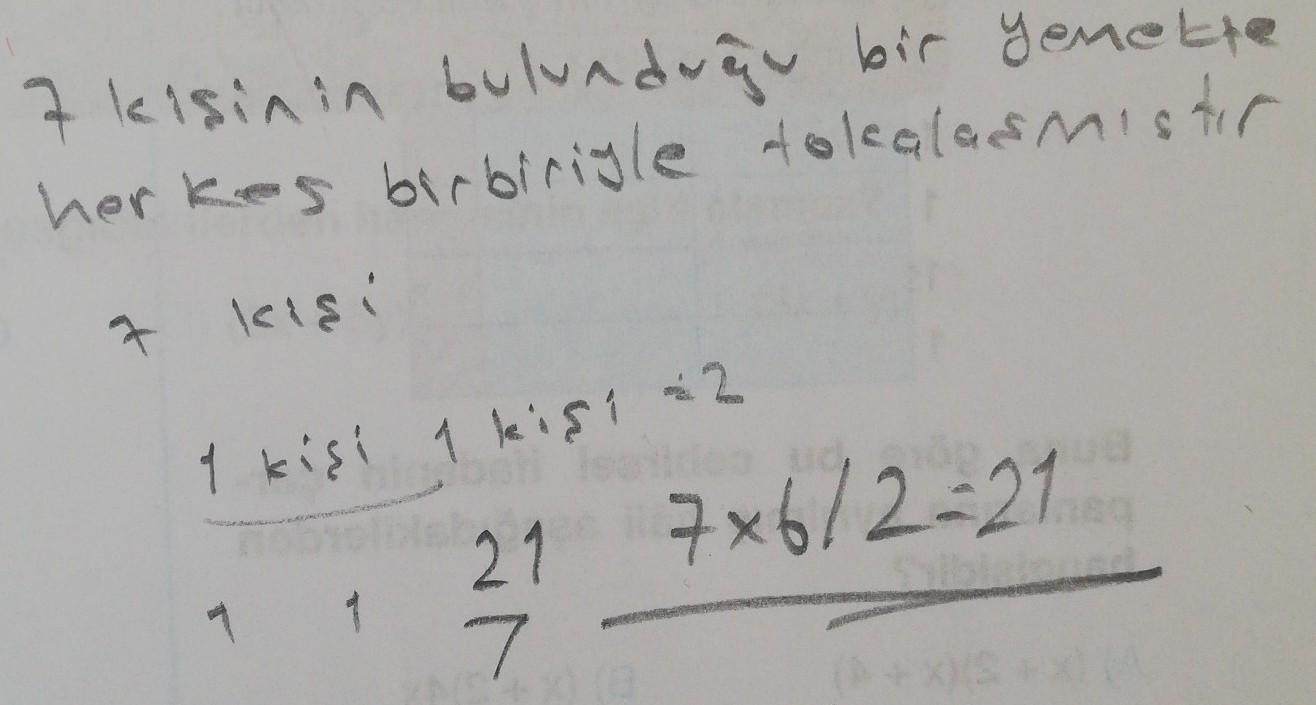 7 kişinin bulunduğu bir yemekte
herkes birbiriyle tokalaşmıştır
7 kişi
1 kişi 1 kişi =2
7x6/2=21
21
1 1 7